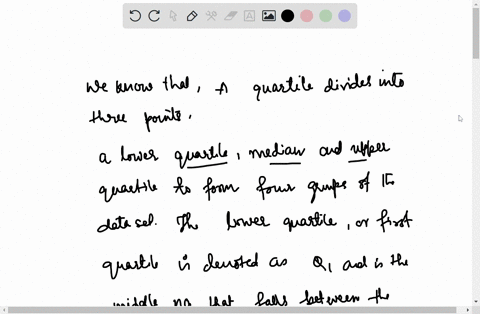 We know that, A quartile divides into
three points.
a lower quartile, median and upper
quartile to form four groups of the
data set. The lower quartile, or first
quartile is denoted as Q1 and is the
middle no that falls between the